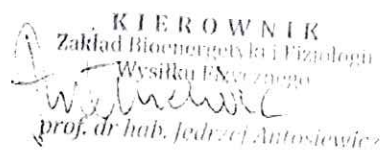 KIEROWNIK
Zakład Bioenergetyki i Fizjologii
Wysiłku Fizycznego
prof. dr hab. Jędrzej Antosiewicz